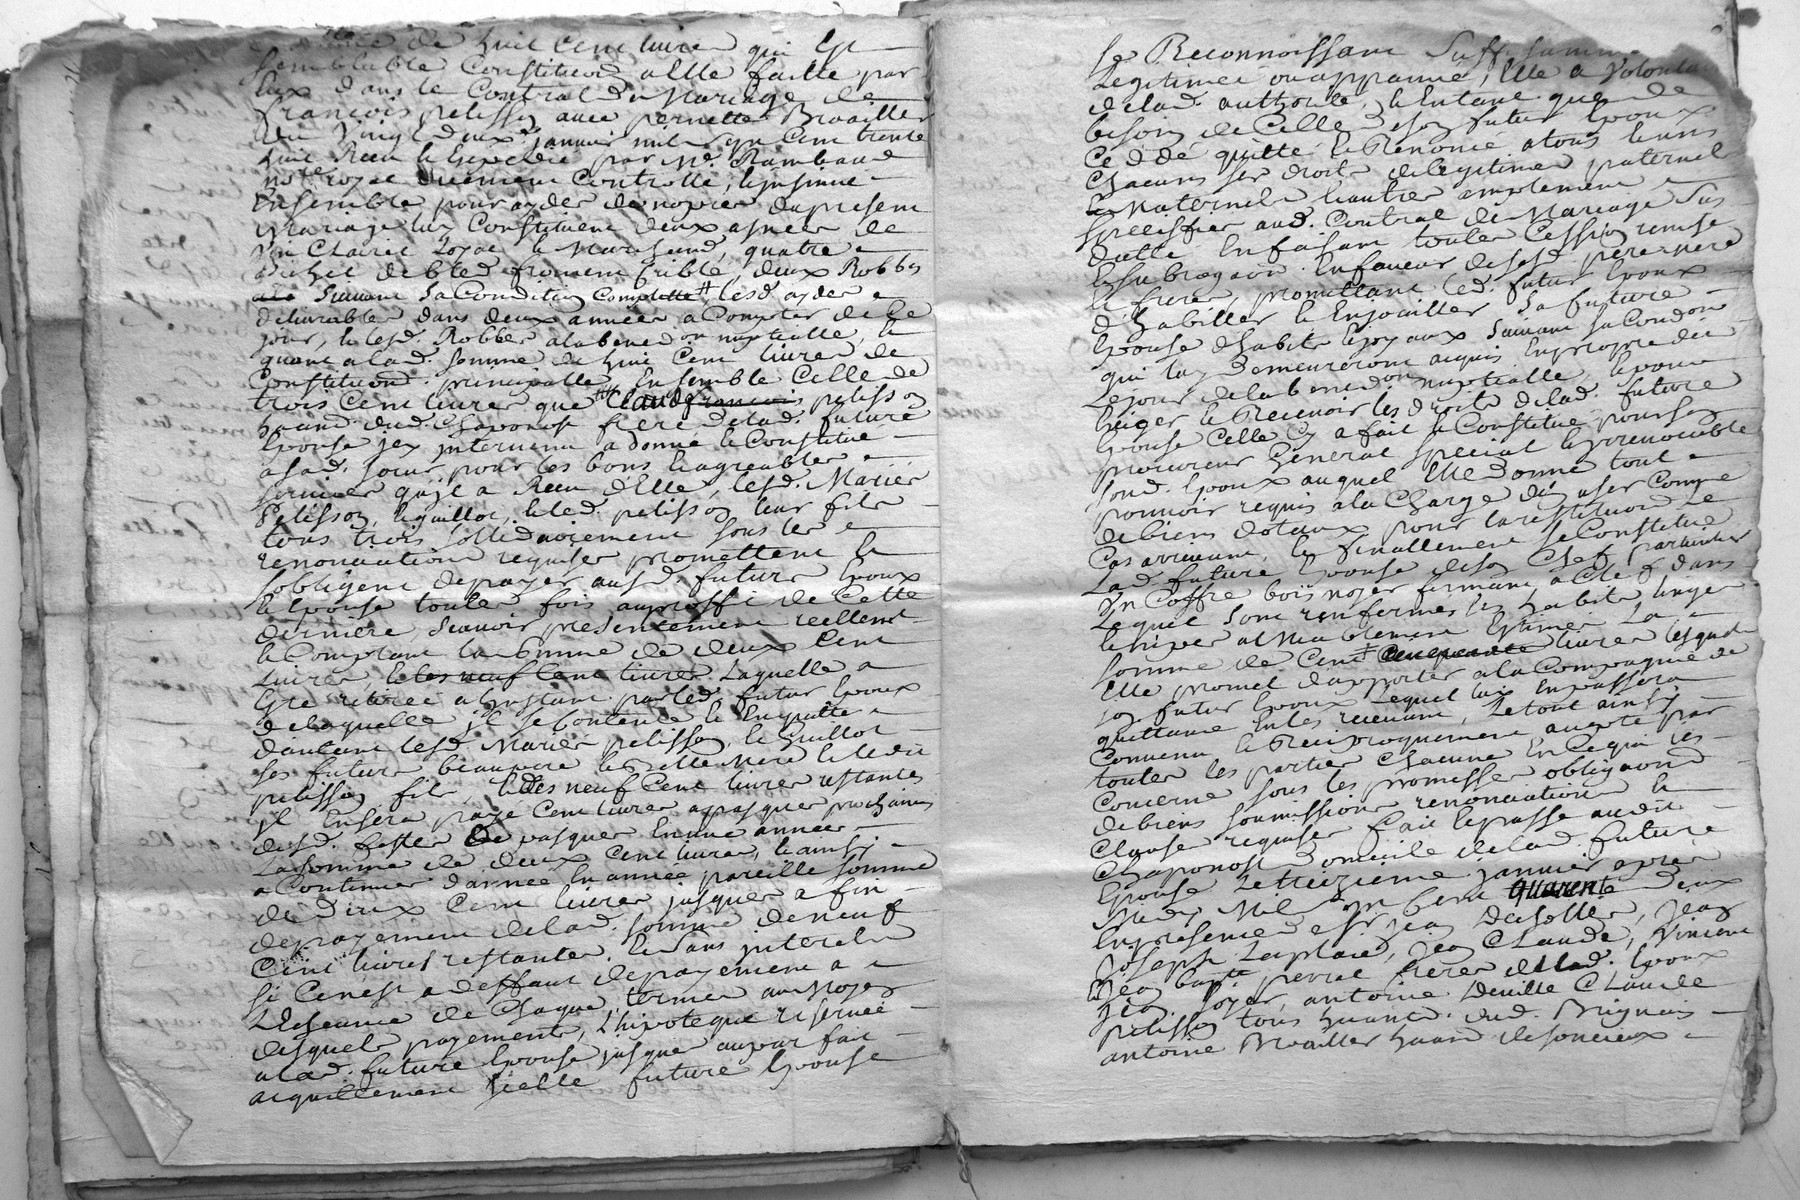 de huit cent livres qui est
semblable Constitution a elle faitte par
eux dans le Contrat de Mariage de
françois pelisson avec pernette Broailler
du vingt deux janvier mil sept Cent trente
huit Receu et Expedié par Me. Rambaud
notre royal duement Controllé, et insinué
Ensemble pour ayder de nopces du present
Mariage luy Constituent deux asnées de
vin Clairet loyal et Marchand, quatre
bichet de bled froment Criblé, deux Robbes
suivant sa Condition Complette # lesd. aydes
delivrables dans deux années a Compter de Ce
jour, et lesd. Robbes a la bened on nuptialle, et
quant a lad. somme de huit Cent livres de
Constitution principalle, Ensemble Celle de
trois Cent livres que # Claude françois pelisson
haband. dud. Chaponost frere de lad. future
Epouse jcy intervenu a donné et Constitué
a sad. soeur pour les bons et agreables
services qu'jl a Receu d'Elle, lesd. Mariés
Pelisson, et guillot, et led. pelisson leur fils
tous trois sollidairement sous les
renonciations requises promettent et
sobligent de payer ausd. futurs Epoux
et Epouse toutes fois au proffit de Cette
derniere, scavoir presentement reellement
et Comptant la somme de deux Cent
Livres et les neuf Cent livres Laquelle a
Esté retirée a l'instant par led. futur Epoux
de laquelle jl se Contente et En quitte
d'autant lesd. Mariés pelisson, et Guillot
ses futurs beaupere et belle Mere et le dit
pelisson fils, et les neuf Cent livres restantes
jl En sera payé Cent livres a pasques prochaines
desd. festes de pasques En une année
La somme de deux Cent livres, et ainsy
a Continuer d'année En année pareille somme
de deux Cent livres jusques a fin
de payement de lad. somme de neuf
Cent livres restantes. Et sans jnterets
si Ce n'est a deffaut de payement a
L'Echeance de Chaque terme au Moyen
desquels payements, L'hipoteque reservée
a lad. future Epouse jusque au par fait
acquittement jcelle future Epouse
se Reconnoissant suffisamment
Legitimée ou appannée, Elle a volontairement
de lad. authorité, et Entant que de
besoin de Celle de son futur Epoux
Ceddé quitté et Renoncé a tous et uns
Chacuns ses droits de legitime paternels
et Maternels et autres amplement
speciffiés aud. Contrat de Mariage Sus
datté En faisant toutes Cession remise
et subrogaon En faveur de sesd. pere mere
et freres, promettant led. futur Epoux
d'habiller et Enjoailler sa future
Epouse d'habits et joyaux Suivant sa Condon
qui luy demeureront acquis En propre dès
Le jour de la bened on nuptialle, et pour
Exiger et Recevoir les droits de lad. future
Epouse Celle Cy a fait et Constitué pour son
procureur General special et jrrevocable
sond. Epoux auquel Elle donne tout
pouvoir requis a la Charge d'En user Comme
de biens dotaux pour la restitution le
Cas arrivant, et finallement se Constitue
Lad. future Epouse de son Chef particulier
Un Coffre bois noyer fermant a Clef dans
Lequel sont renfermés ses habits linges
et nipes al Meublement Estimés La
somme de Cent # Cinquante livres lesquels
Elle promet d'apporter a la Compagnie de
son futur Epoux Lequel luy En passera
quittance En les recevant, Le tout ainsy
Convenu et Reciproquement, accepté par
toutes les parties Chacune En Ce qui les
Concerne sous les promesses obligaons
de biens soumissions renonciations et
Clauses requises fait et passé audit
Chaponost domicile de lad. future
Epouse Le treizieme janvier apres
Midy Mil sept Cent quarente deux
En presence de sr jean deschelles, Jean
Joseph Laplace, Jean Claude, Vincent
et Jean bapte perret freres de lad. Epoux
Jean Joyet, antoine Deville Claude
pelisson tous habants. dud. Brignais
antoine Broailler haband de soucieux